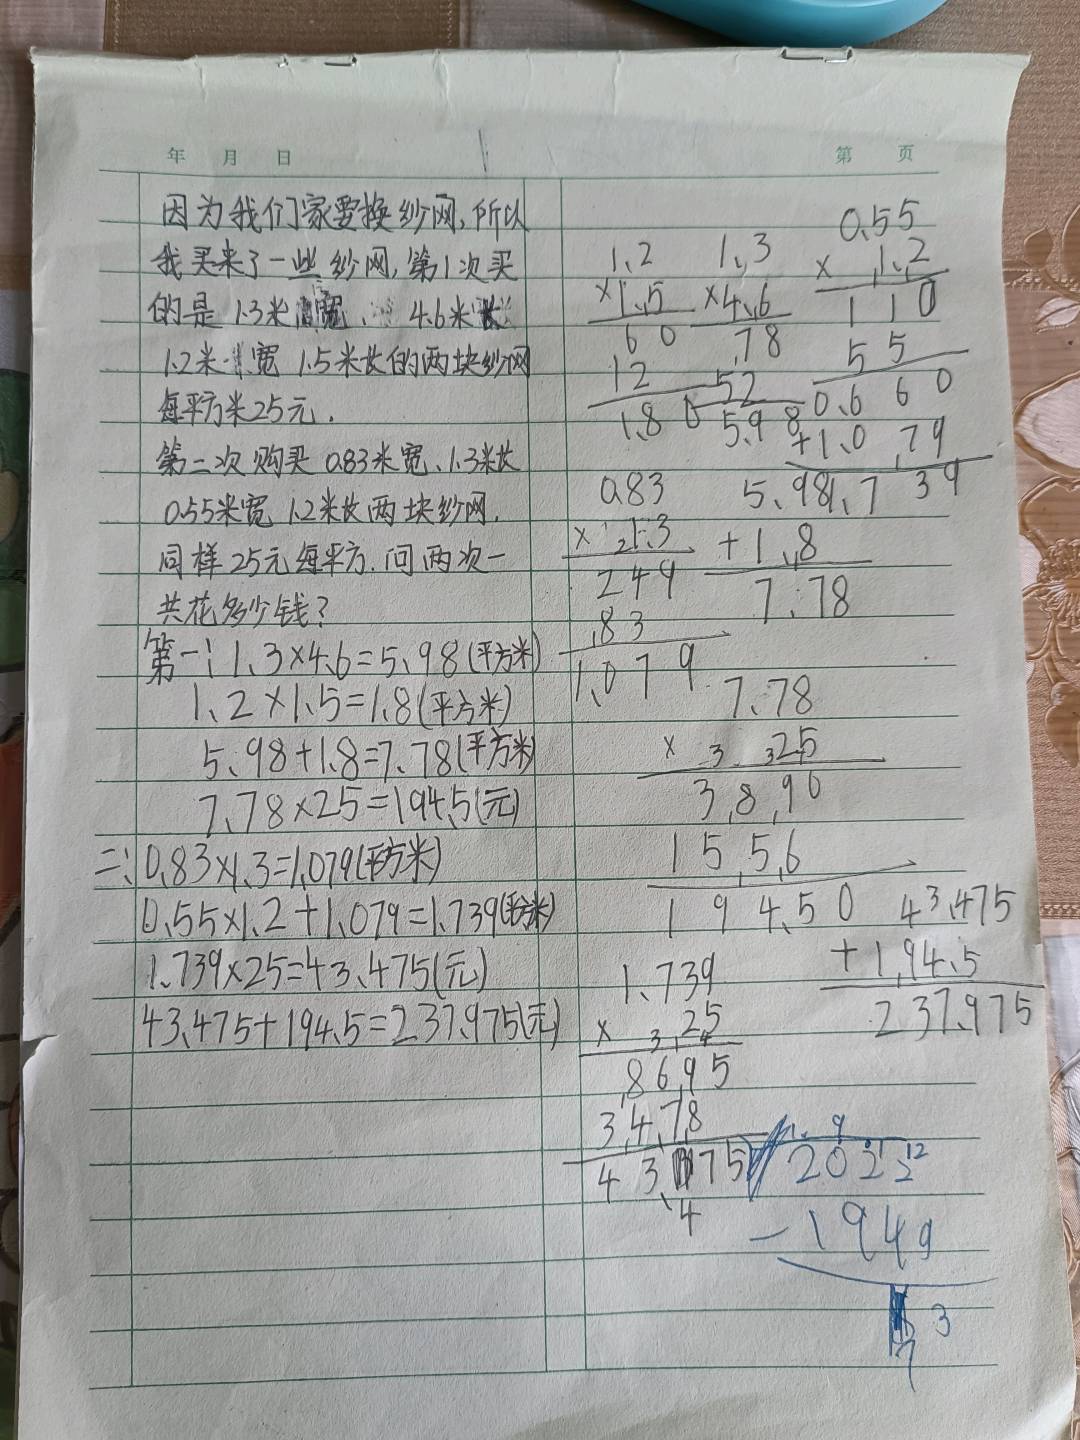 年 月 日
第 页
因为我们家要换纱网,所以
我买来了一些纱网,第1次买
的是1.3米宽、4.6米长
1.2米宽 1.5米长的两块纱网
每平方米25元.
第二次购买0.83米宽、1.3米长
0.55米宽 1.2米长两块纱网,
同样25元每平方.问两次一
共花多少钱?
第一: 1.3×4.6=5.98(平方米)
1.2×1.5=1.8(平方米)
5.98+1.8=7.78(平方米)
7.78×25=194.5(元)
二: 0.83×1.3=1.079(平方米)
0.55×1.2+1.079=1.739(平方米)
1.739×25=43.475(元)
43.475+194.5=237.975(元)
1.2
×1.5
60
12
1.80
1.3
×4.6
78
52
5.98
0.55
× 1.2
110
55
0.660
+1.079
1.739
0.83
× 1.3
249
83
1.079
5.98
+1.8
7.78
7.78
× 25
3890
1556
194.50
43.475
+194.5
237.975
1.739
× 25
8695
3478
43 75
4
2022
-1949
73